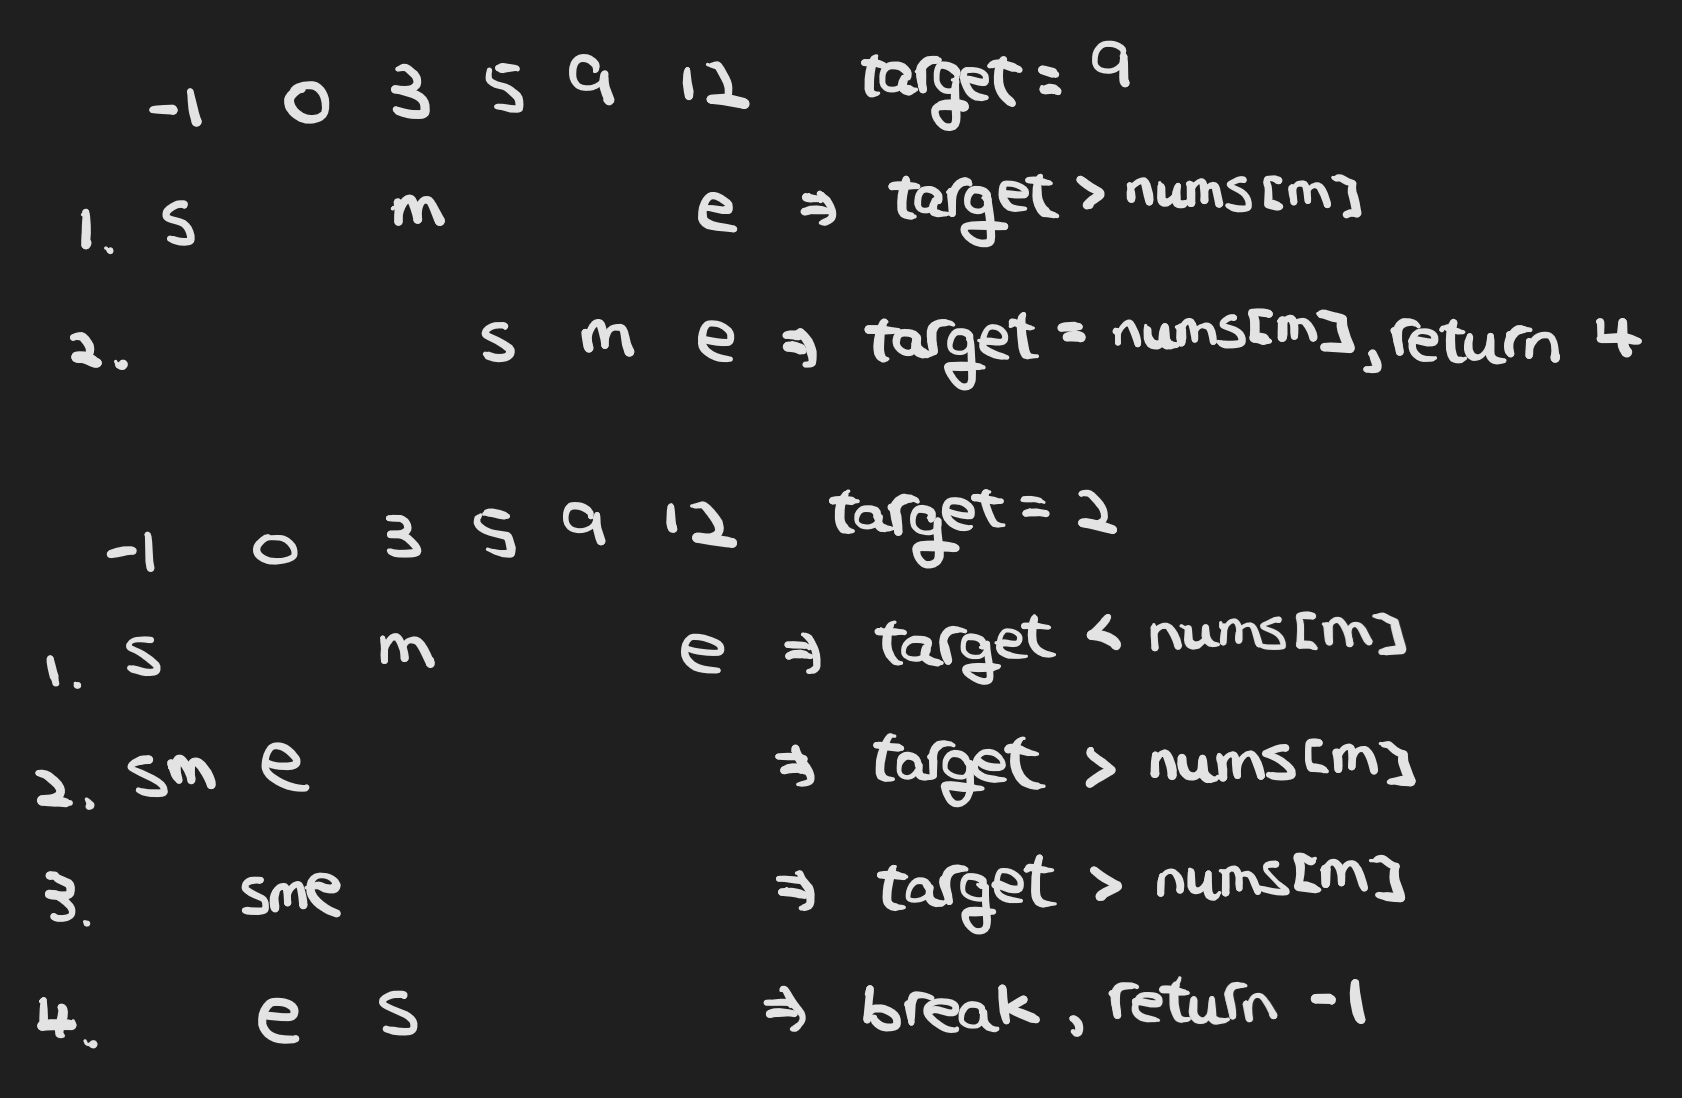 -1 0 3 5 9 12 target = 9
1. s m e ⇒ target > nums[m]
2. s m e ⇒ target = nums[m], return 4
-1 0 3 5 9 12 target = 2
1. s m e ⇒ target < nums[m]
2. sm e ⇒ target > nums[m]
3. sme ⇒ target > nums[m]
4. e s ⇒ break, return -1